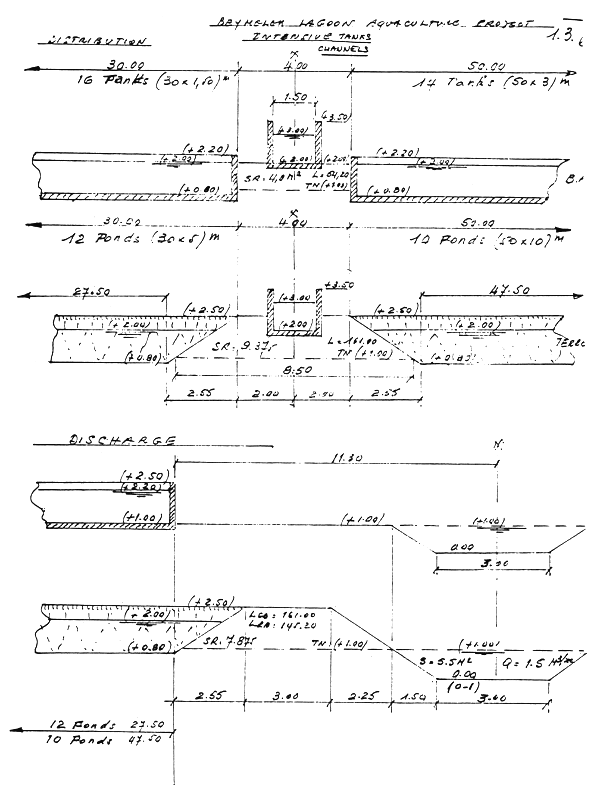 BEYMELEK LAGOON AQUACULTURE PROJECT
1.3.
DISTRIBUTION
INTENSIVE TANKS
CHANNELS
30.00 4.00 50.00
16 Tanks (30x1,50)m 14 Tanks (50x3)m
1.50
+3.50
(+3.00)
(+2.20) (+2.20)
(+2.00) (+2.00) (+2.00)
SR = 4,8 m²
(+0.80) (+0.80)
30.00 4.00 50.00
12 Ponds (30x5)m 10 Ponds (50x10)m
27.50 47.50
+3.50
(+2.50) (+3.00) (+2.50)
(+2.00) (+2.00) (+2.00)
SR = 9.375 L = 161.00
(+0.80) TN (+1.00)
8.50
2.55 2.00 2.55
DISCHARGE
11.30
(+2.50)
(+2.20)
(+1.00) (+1.00) (+1.00)
0.00
3.00
(+2.50)
(+2.00) 161.00
145.20
SR = 7.875 TN (+1.00) (+1.00)
(+0.80) S = 5.5 M² Q = 1.5 M³/sec
0.00
(0-1)
2.55 3.00 2.25 1.50 3.00
12 Ponds 27.50
10 Ponds 47.50